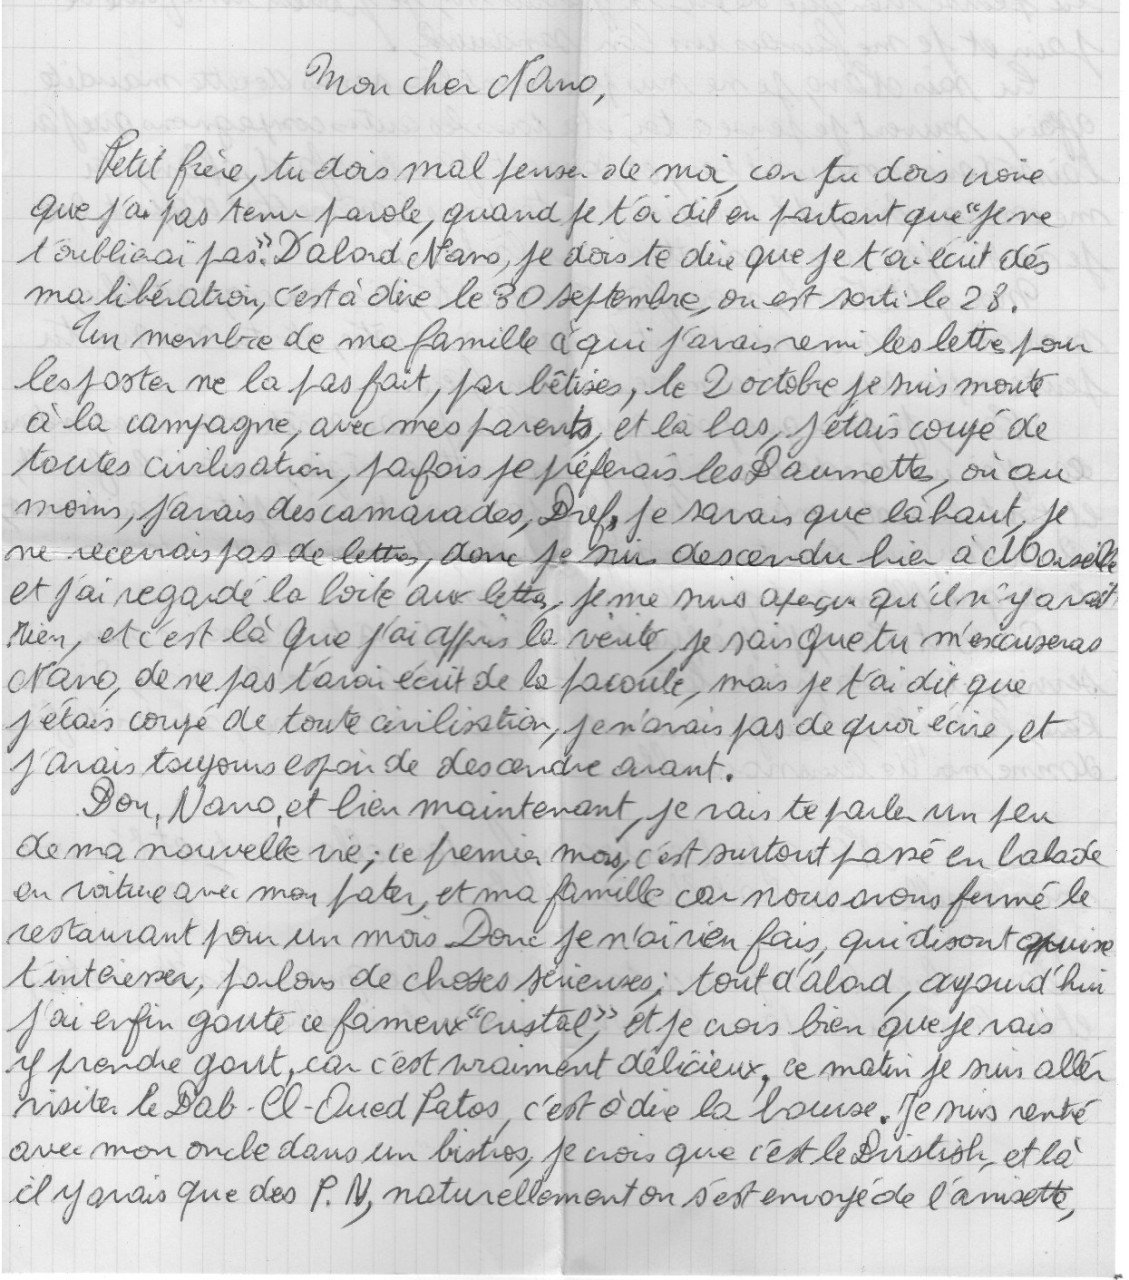 Mon cher Nano,
Petit frère, tu dois mal penser de moi, car tu dois croire
que j'ai pas tenu parole, quand je t'ai dit en partant que "je ne
t'oublierai pas". D'abord Nano, je dois te dire que je t'ai écrit dés
ma libération, c'est à dire le 30 septembre, on est sorti le 28.
Un membre de ma famille à qui j'avais remi les lettre pour
les poster ne la pas fait, par bêtises, le 2 octobre je suis monté
à la campagne, avec mes parents, et là bas, j'étais coupé de
toutes civilisation, parfois je préferais les Baumettes, où au
moins, j'avais des camarades, Bref, je savais que là haut, je
ne recevrais pas de lettres, donc je suis descendu hier à Marseille
et j'ai regardé la boite aux lettres, je me suis aperçu qu'il n'y avait
rien, et c'est là que j'ai appris la vérité, je sais que tu m'excuseras
Nano, de ne pas t'avoir écrit de la , mais je t'ai dit que
j'étais coupé de toute civilisation, je n'avais pas de quoi écrire, et
j'avais toujours espoir de descendre avant.
Bon, Nano, et bien maintenant, je vais te parler un peu
de ma nouvelle vie; ce premier mois, c'est surtout passé en balade
en voiture avec mon pater, et ma famille car nous avons fermé le
restaurant pour un mois Donc je n'ai rien fais, qui disont puise
t'intéresser, parlons de choses sérieuses; tout d'abord, aujourd'hui
j'ai enfin gouté ce fameux "cristal," et je crois bien que je vais
y prendre gout, car c'est vraiment délicieux, ce matin je suis allér
visiter le Bab-El-Oued Patos, c'est à dire la bourse. Je suis rentré
avec mon oncle dans un bistros, je crois que c'est le , et là
il y avais que des P.N, naturellement on s'est envoyé de l'anisette,